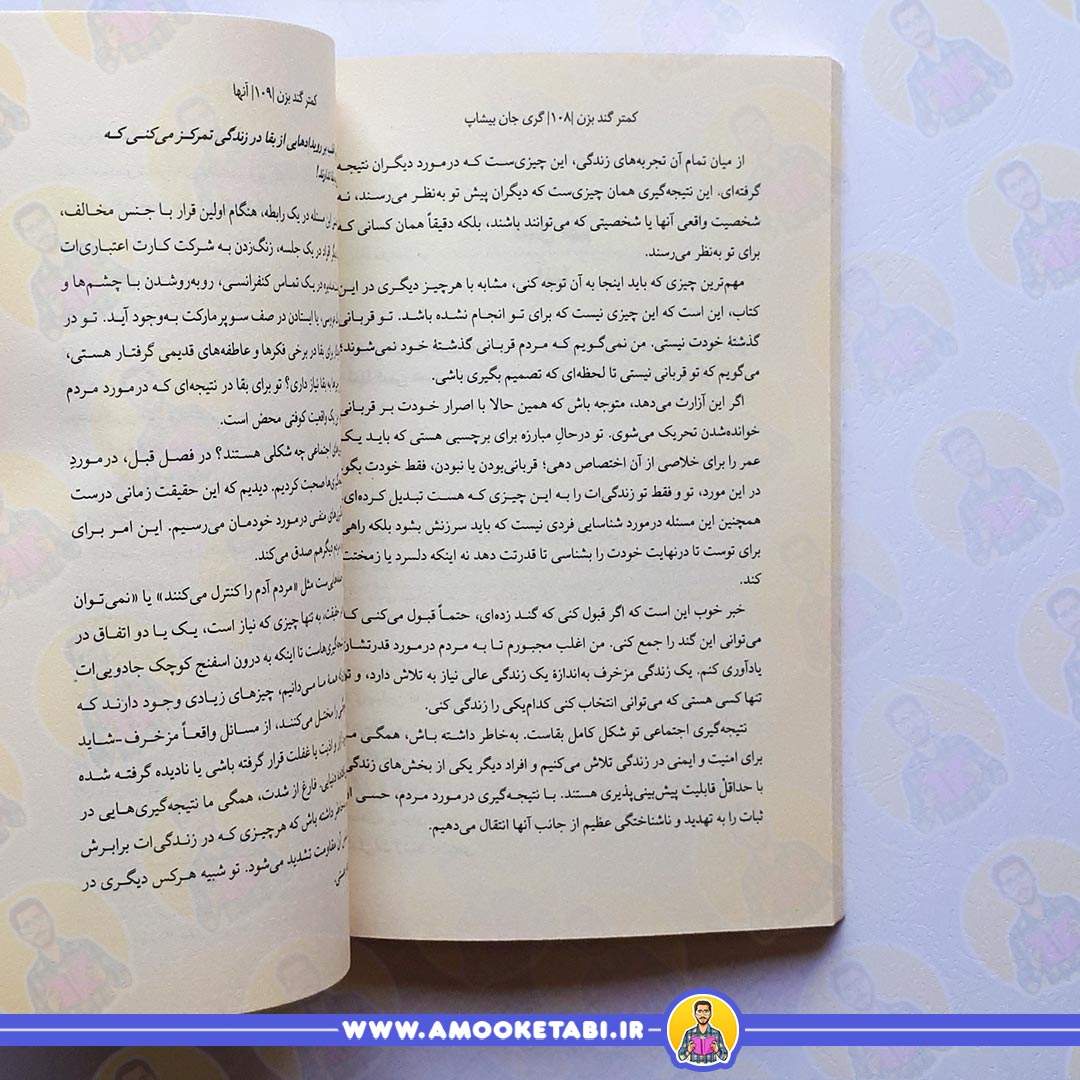 کمتر گند بزن |۱۰۸| گری جان بیشاپ
از میان تمام آن تجربه‌های زندگی، این چیزی‌ست که درمورد دیگران نتیجه
گرفته‌ای. این نتیجه‌گیری همان چیزی‌ست که دیگران پیش تو به‌نظر می‌رسند، نه
شخصیت واقعی آنها یا شخصیتی که می‌توانند باشند، بلکه دقیقاً همان کسانی که
برای تو به‌نظر می‌رسند.
مهم‌ترین چیزی که باید اینجا به آن توجه کنی، مشابه با هرچیز دیگری در این
کتاب، این است که این چیزی نیست که برای تو انجام نشده باشد. تو قربانی
گذشتهٔ خودت نیستی. من نمی‌گویم که مردم قربانی گذشتهٔ خود نمی‌شوند؛
می‌گویم که تو قربانی نیستی تا لحظه‌ای که تصمیم بگیری باشی.
اگر این آزارت می‌دهد، متوجه باش که همین حالا با اصرار خودت بر قربانی
خوانده‌شدن تحریک می‌شوی. تو درحالِ مبارزه برای برچسبی هستی که باید یک
عمر را برای خلاصی از آن اختصاص دهی؛ قربانی‌بودن یا نبودن، فقط خودت بگو.
در این مورد، تو و فقط تو زندگی‌ات را به این چیزی که هست تبدیل کرده‌ای.
همچنین این مسئله درمورد شناسایی فردی نیست که باید سرزنش بشود بلکه راهی
برای توست تا درنهایت خودت را بشناسی تا قدرتت دهد نه اینکه دلسرد یا زمختت
کند.
خبر خوب این است که اگر قبول کنی که گند زده‌ای، حتماً قبول می‌کنی که
می‌توانی این گند را جمع کنی. من اغلب مجبورم تا به مردم درمورد قدرتشان
یادآوری کنم. یک زندگی مزخرف به‌اندازهٔ یک زندگی عالی نیاز به تلاش دارد، و تو
تنها کسی هستی که می‌توانی انتخاب کنی کدام‌یکی را زندگی کنی.
نتیجه‌گیری اجتماعی تو شکل کامل بقاست. به‌خاطر داشته باش، همگی ما
برای امنیت و ایمنی در زندگی تلاش می‌کنیم و افراد دیگر یکی از بخش‌های زندگی
با حداقلْ قابلیت پیش‌بینی‌پذیری هستند. با نتیجه‌گیری درمورد مردم، حسی از
ثبات را به تهدید و ناشناختگی عظیم از جانب آنها انتقال می‌دهیم.
کمتر گند بزن |۱۰۹| آنها
بر رویدادهایی از بقا در زندگی تمرکز می‌کنی که
مسئله در یک رابطه، هنگام اولین قرار با جنس مخالف،
در یک جلسه، زنگ‌زدن به شرکت کارت اعتباری‌ات
در یک تماس کنفرانسی، روبه‌روشدن با چشم‌ها و
یا ایستادن در صف سوپرمارکت به‌وجود آید. تو در
برای بقا در برخی فکرها و عاطفه‌های قدیمی گرفتار هستی،
به بقا نیاز داری؟ تو برای بقا در نتیجه‌ای که درمورد مردم
یک واقعیت کوفتی محض است.
اجتماعی چه شکلی هستند؟ در فصل قبل، درموردِ
صحبت کردیم. دیدیم که این حقیقت زمانی درست
منفی درمورد خودمان می‌رسیم. این امر برای
دیگر هم صدق می‌کند.
مثل «مردم آدم را کنترل می‌کنند» یا «نمی‌توان
به تنها چیزی که نیاز است، یک یا دو اتفاق در
تا اینکه به درون اسفنج کوچک جادویی‌ات
همهٔ ما می‌دانیم، چیزهای زیادی وجود دارند که
را مختل می‌کنند، از مسائل واقعاً مزخرف-شاید
و اذیت یا غفلت قرار گرفته باشی یا نادیده گرفته شده
دنیایی. فارغ از شدت، همگی ما نتیجه‌گیری‌هایی در
داشته باش که هرچیزی که در زندگی‌ات برابرش
مقاومت تشدید می‌شود. تو شبیه هرکس دیگری در
WWW.AMOOKETABI.IR